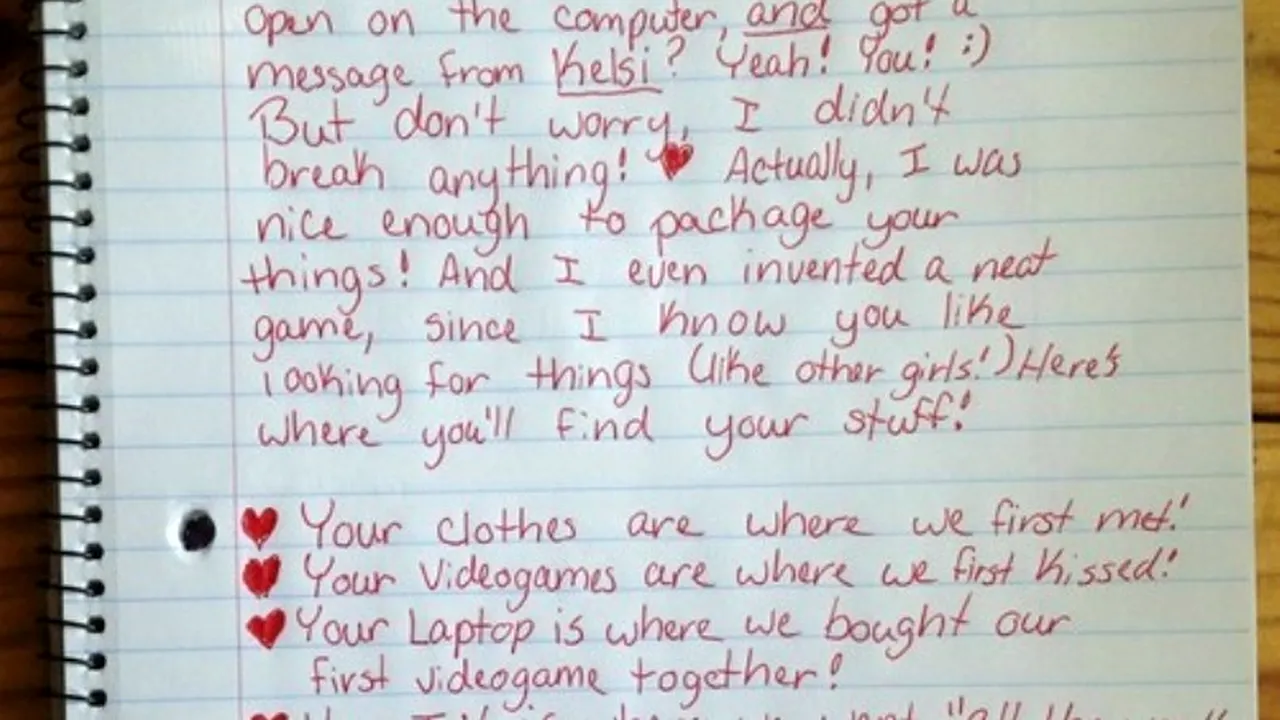 open on the computer, and got a
message from Kelsi? Yeah! You! :)
But don't worry, I didn't
break anything! ♥ Actually, I was
nice enough to package your
things! And I even invented a neat
game, since I know you like
looking for things (like other girls!) Here's
where you'll find your stuff!
♥ Your clothes are where we first met!
♥ Your Videogames are where we first kissed!
♥ Your Laptop is where we bought our
first videogame together!